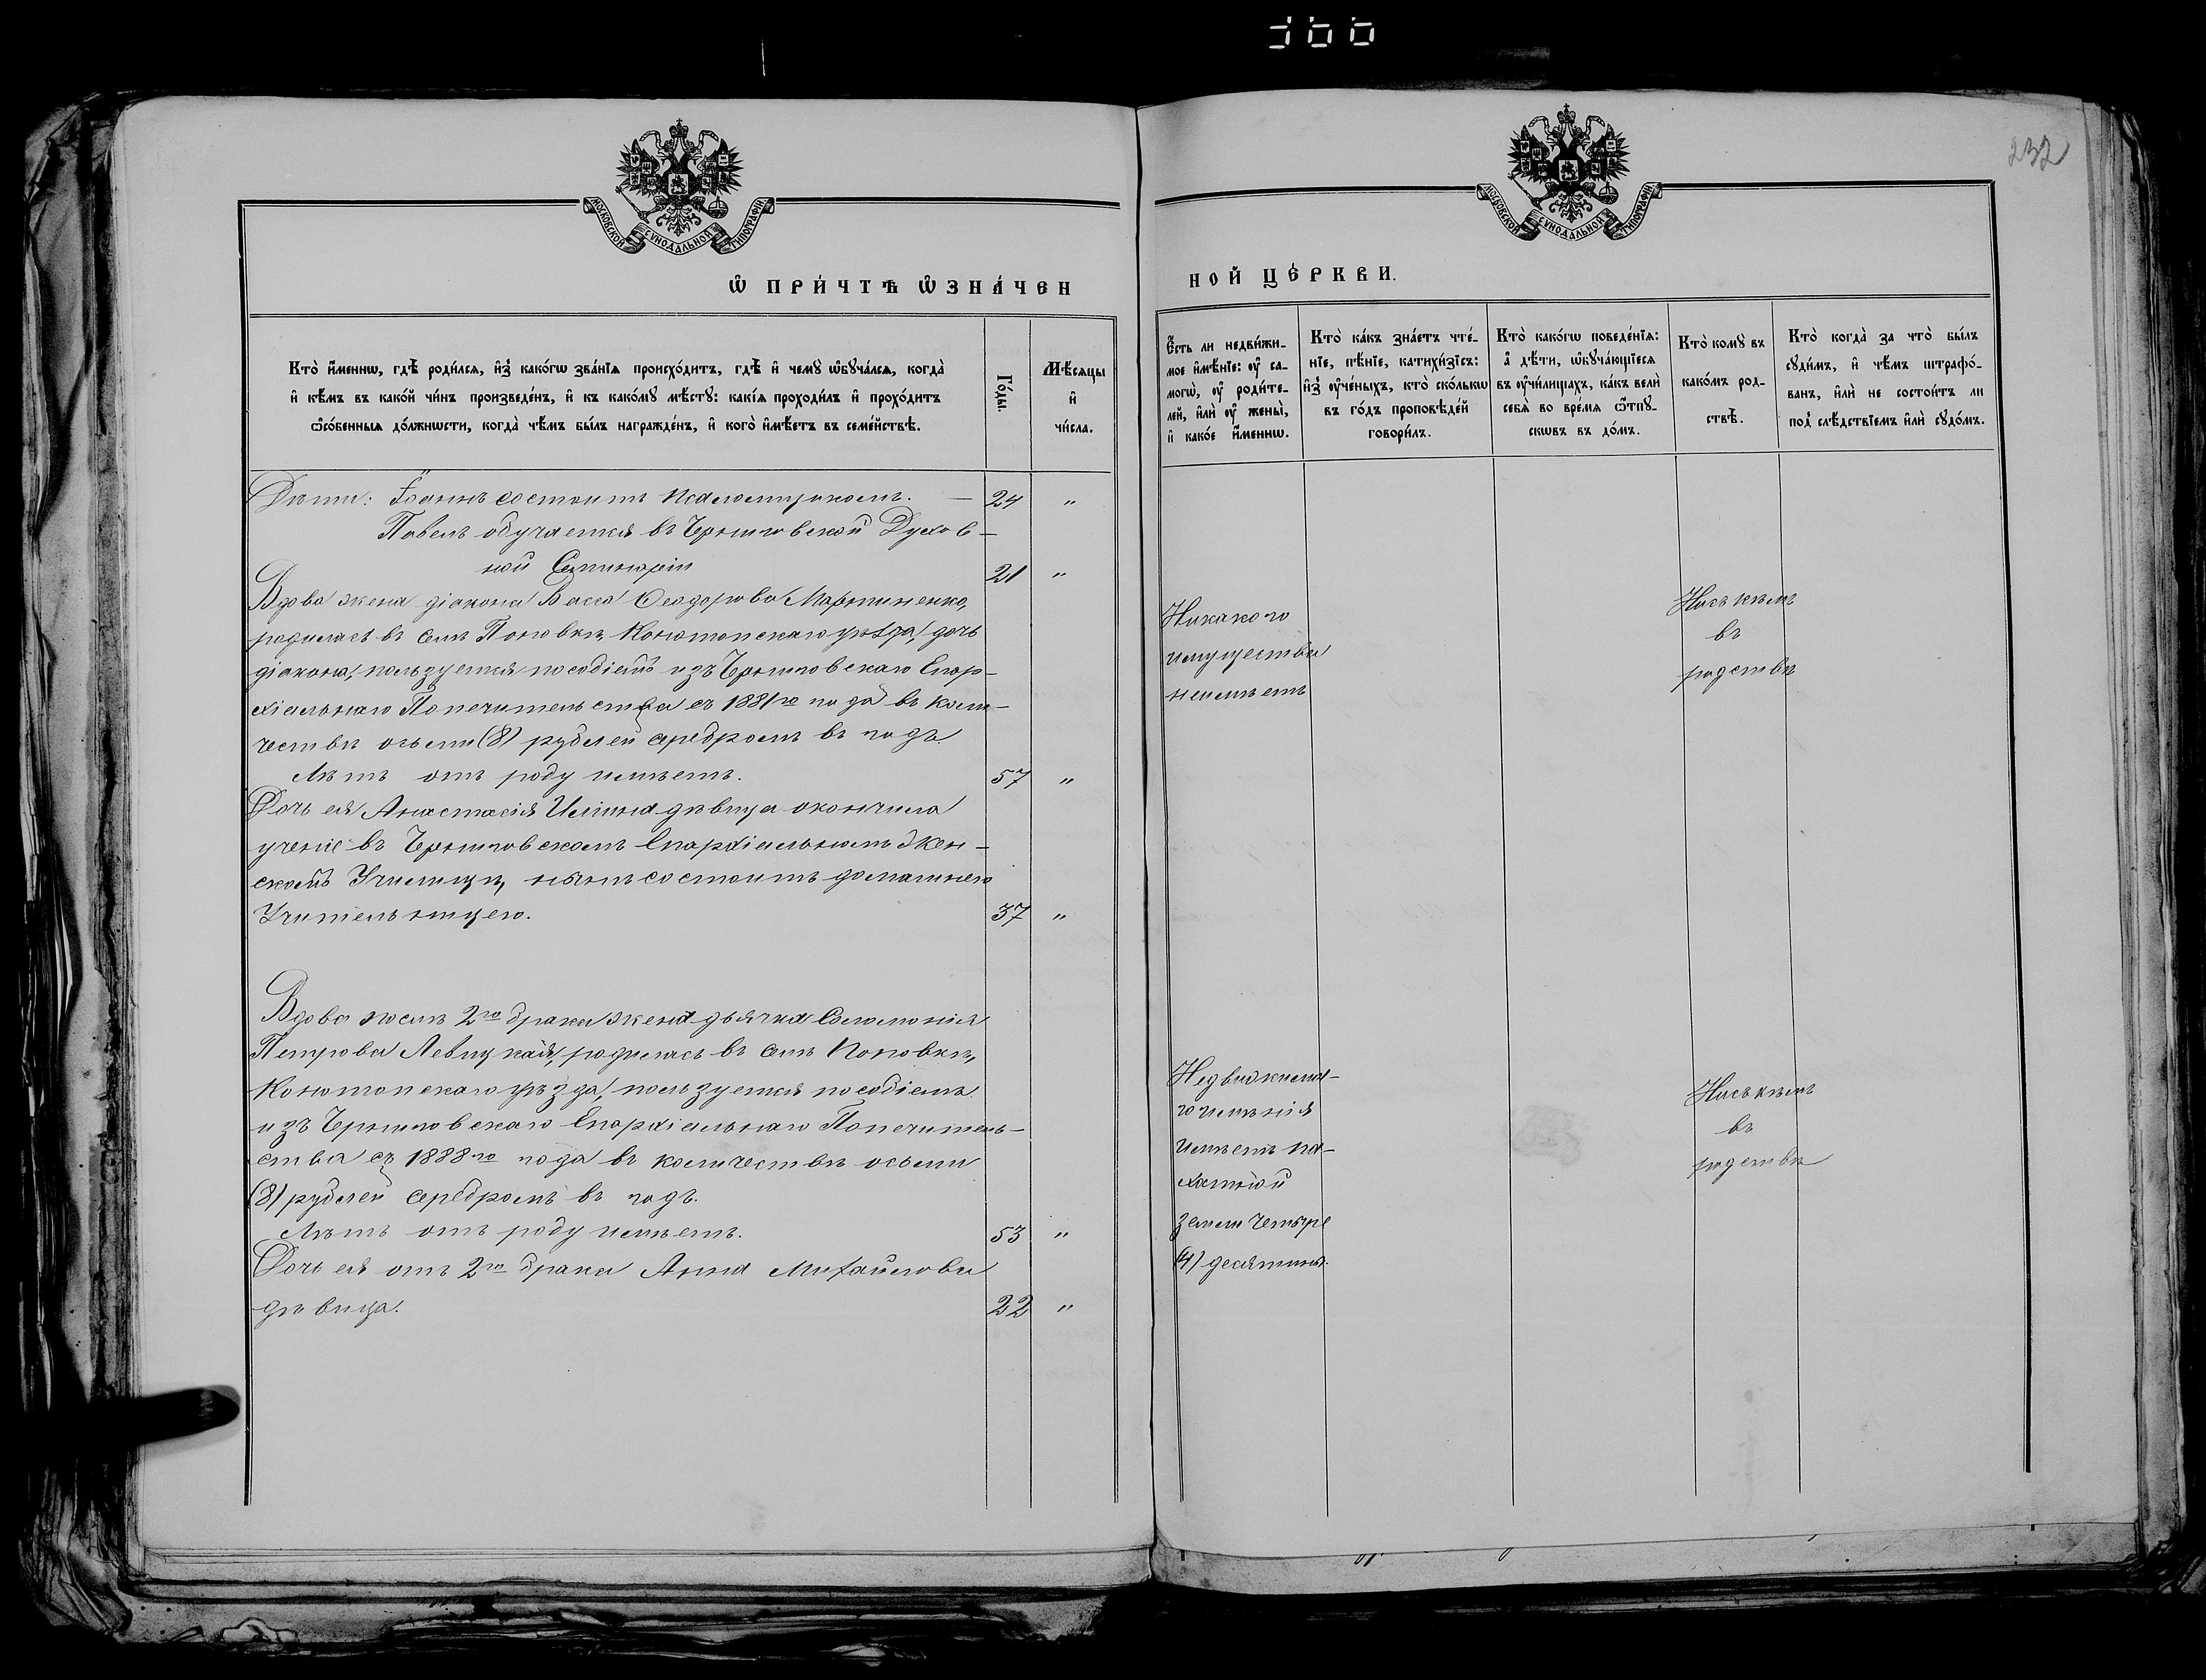 232
МОСКОВСКОЙ СѴНОДАЛЬНОЙ ТИПОГРАФІИ
МОСКОВСКОЙ СѴНОДАЛЬНОЙ ТИПОГРАФІИ
Ѡ ПРИ́ЧТѢ ѠЗНА́ЧЕН
НОЙ ЦЕ́РКВИ.
Кто̀ и҆́меннѡ, гдѣ̀ роди́лсѧ, и҆з̾ како́гѡ зва́нїѧ происхо́дитъ, гдѣ̀ и҆ чемꙋ̀ ѡ҆бꙋча́лсѧ, когда̀
и҆ кѣ́мъ въ како́й чи́нъ произведе́нъ, и҆ къ како́мꙋ мѣ́стꙋ: какі́ѧ проходи́лъ и҆ прохо́дитъ
ѻ҆со́бенныѧ до́лжнѡсти, когда̀ чѣ́мъ бы́лъ награжде́нъ, и҆ кого̀ и҆мѣ́етъ въ семе́йствѣ.
Го́ды.
Мѣ́сѧцы
и҆
чи́сла.
Є҆́сть ли недви́жи-
мое и҆мѣ́нїе: ᲂу҆ са-
могѡ̀, ᲂу҆ роди́те-
лей, и҆лѝ ᲂу҆ жены̀,
и҆ како́е и҆́меннѡ.
Кто̀ ка́къ зна́етъ чте́-
нїе, пѣ́нїе, катихи́зїсъ:
и҆з̾ ᲂу҆че́ныхъ, кто̀ ско́лькѡ
въ го́дъ проповѣ́дей
говори́лъ.
Кто̀ како́гѡ поведе́нїѧ:
а҆ дѣ́ти, ѡ҆бꙋча́ющїесѧ
въ ᲂу҆чи́лищахъ, ка́къ велѝ
себѧ̀ во вре́мѧ ѿпꙋ-
скѡвъ въ до́мъ.
Кто̀ комꙋ̀ въ
како́мъ род-
ствѣ̀.
Кто̀ когда̀ за что̀ бы́лъ
сꙋди́мъ, и҆ чѣ́мъ штрафо́-
ванъ, и҆лѝ не состои́тъ ли
под̾ слѣ́дствїемъ и҆лѝ сꙋдо́мъ.
Дѣти: Іоаннъ состоитъ псаломщикомъ. — 24 "
Павелъ обучается въ Черниговской Духов-
ной Семинаріи 21 "
Вдова жена діакона Васса Ѳеодорова Мартиненко,
родилась въ селѣ Поповкѣ, Конотопскаго уѣзда, дочь
діакона, пользуется пособіемъ изъ Черниговскаго Епар-
хіальнаго Попечительства съ 1881го года въ коли-
чествѣ осьми (8) рублей серебромъ въ годъ.
Лѣтъ отъ роду имѣетъ. 57 "
Никакого
имущества
неимѣетъ
Ни съ кѣмъ
въ
родствѣ
Дочь ея Анастасія Иліина дѣвица окончила
ученіе въ Черниговскомъ Епархіальномъ Жен-
скомъ Училищѣ, нынѣ состоитъ домашнею
Учительницею. 37 "
Вдова послѣ 2го брака жена дьячка Соломонія
Петрова Левицкая, родилась въ селѣ Поповкѣ,
Конотопскаго уѣзда, пользуется пособіемъ
изъ Черниговскаго Епархіальнаго Попечитель-
ства съ 1888го года въ количествѣ осьми
(8) рублей серебромъ въ годъ.
Лѣтъ отъ роду имѣетъ. 53 "
Дочь ея отъ 2го брака Анна Михайлова
дѣвица. 22 "
Недвижима-
го имѣнія
имѣетъ па-
хатной
земли четыре
(4) десятины.
Ни съ кѣмъ
въ
родствѣ